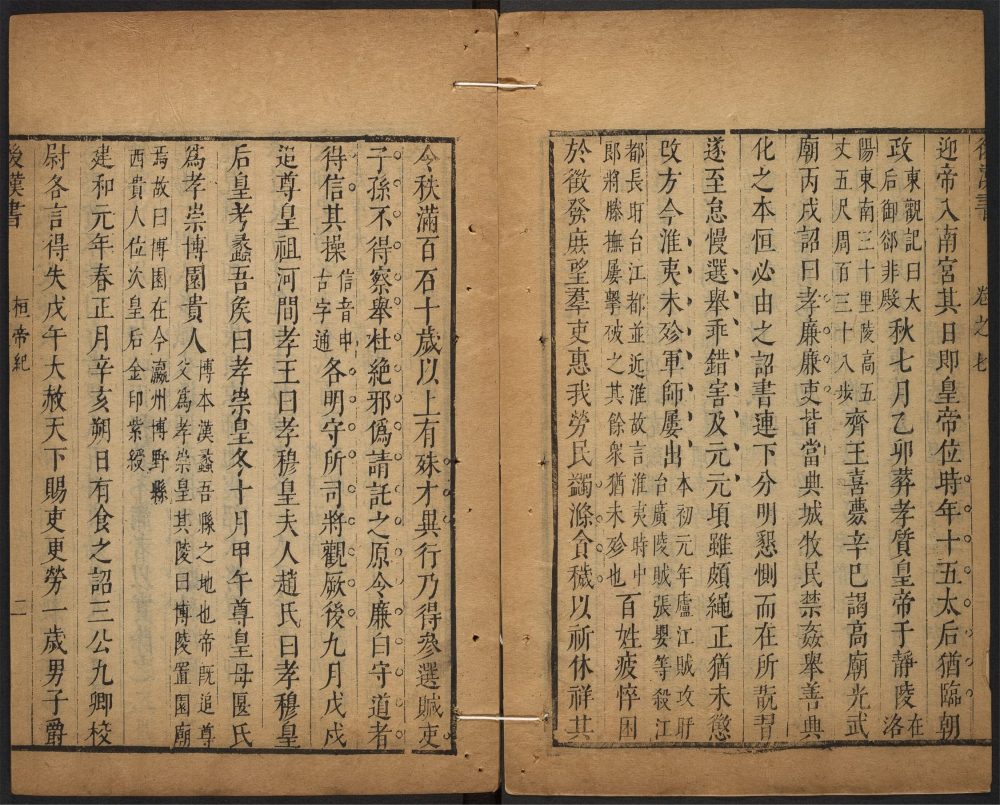 後漢書 卷之七
迎帝入南宮其日即皇帝位時年十五太后猶臨朝
政東觀記曰太后御卻非殿秋七月乙卯葬孝質皇帝于靜陵在洛
陽東南三十里陵高五丈五尺周百三十八步齊王喜薨辛巳謁高廟光武
廟丙戌詔曰孝廉廉吏皆當典城牧民禁姦舉善興
化之本恒必由之詔書連下分明懇惻而在所翫習
遂至怠慢選舉乖錯害及元元頃雖頗繩正猶未懲
改方今淮夷未殄軍師屢出本初元年廬江賊攻盱台廣陵賊張嬰等殺江
都長盱台江都並近淮故言淮夷時中郎將滕撫屢擊破之其餘衆猶未殄也百姓疲悴困
於徵發庶望羣吏惠我勞民蠲滌貪穢以祈休祥其
今秩滿百石十歲以上有殊才異行乃得參選贓吏
子孫不得察舉杜絕邪僞請託之原令廉白守道者
得信其操信音申古字通各明守所司將觀厥後九月戊戌
追尊皇祖河間孝王曰孝穆皇夫人趙氏曰孝穆皇
后皇考蠡吾矦曰孝崇皇冬十月甲午尊皇母匽氏
爲孝崇博園貴人博本漢蠡吾縣之地也帝既追尊父爲孝崇皇其陵曰博陵置園廟
焉故曰博園在今瀛州博野縣西貴人位次皇后金印紫綬
建和元年春正月辛亥朔日有食之詔三公九卿校
尉各言得失戊午大赦天下賜吏更勞一歲男子爵
後漢書 桓帝紀 二